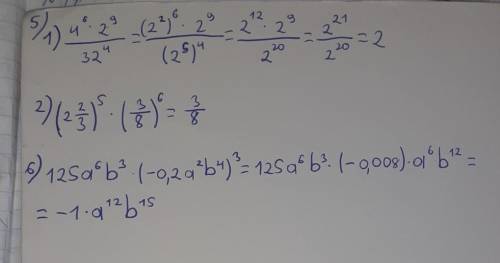 5) 1) 4⁶ · 2⁹ / 32⁴ = (2²)⁶ · 2⁹ / (2⁵)⁴ = 2¹² · 2⁹ / 2²⁰ = 2²¹ / 2²⁰ = 2
2) (2 2/3)⁵ · (3/8)⁶ = 3/8
6) 125a⁶b³ · (-0,2a²b⁴)³ = 125a⁶b³ · (-0,008) · a⁶b¹² =
= -1 · a¹²b¹⁵